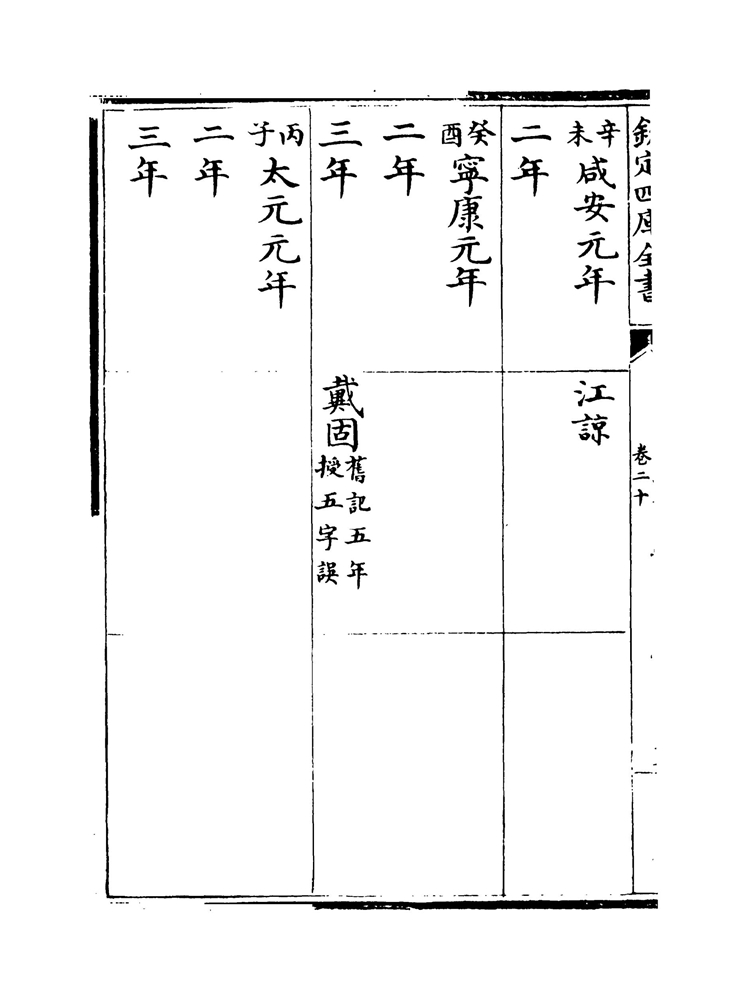 欽定四庫全書
卷二十
辛未咸安元年
江諒
二年
癸酉寧康元年
二年
三年
戴固舊記五年授五字誤
丙子太元元年
二年
三年